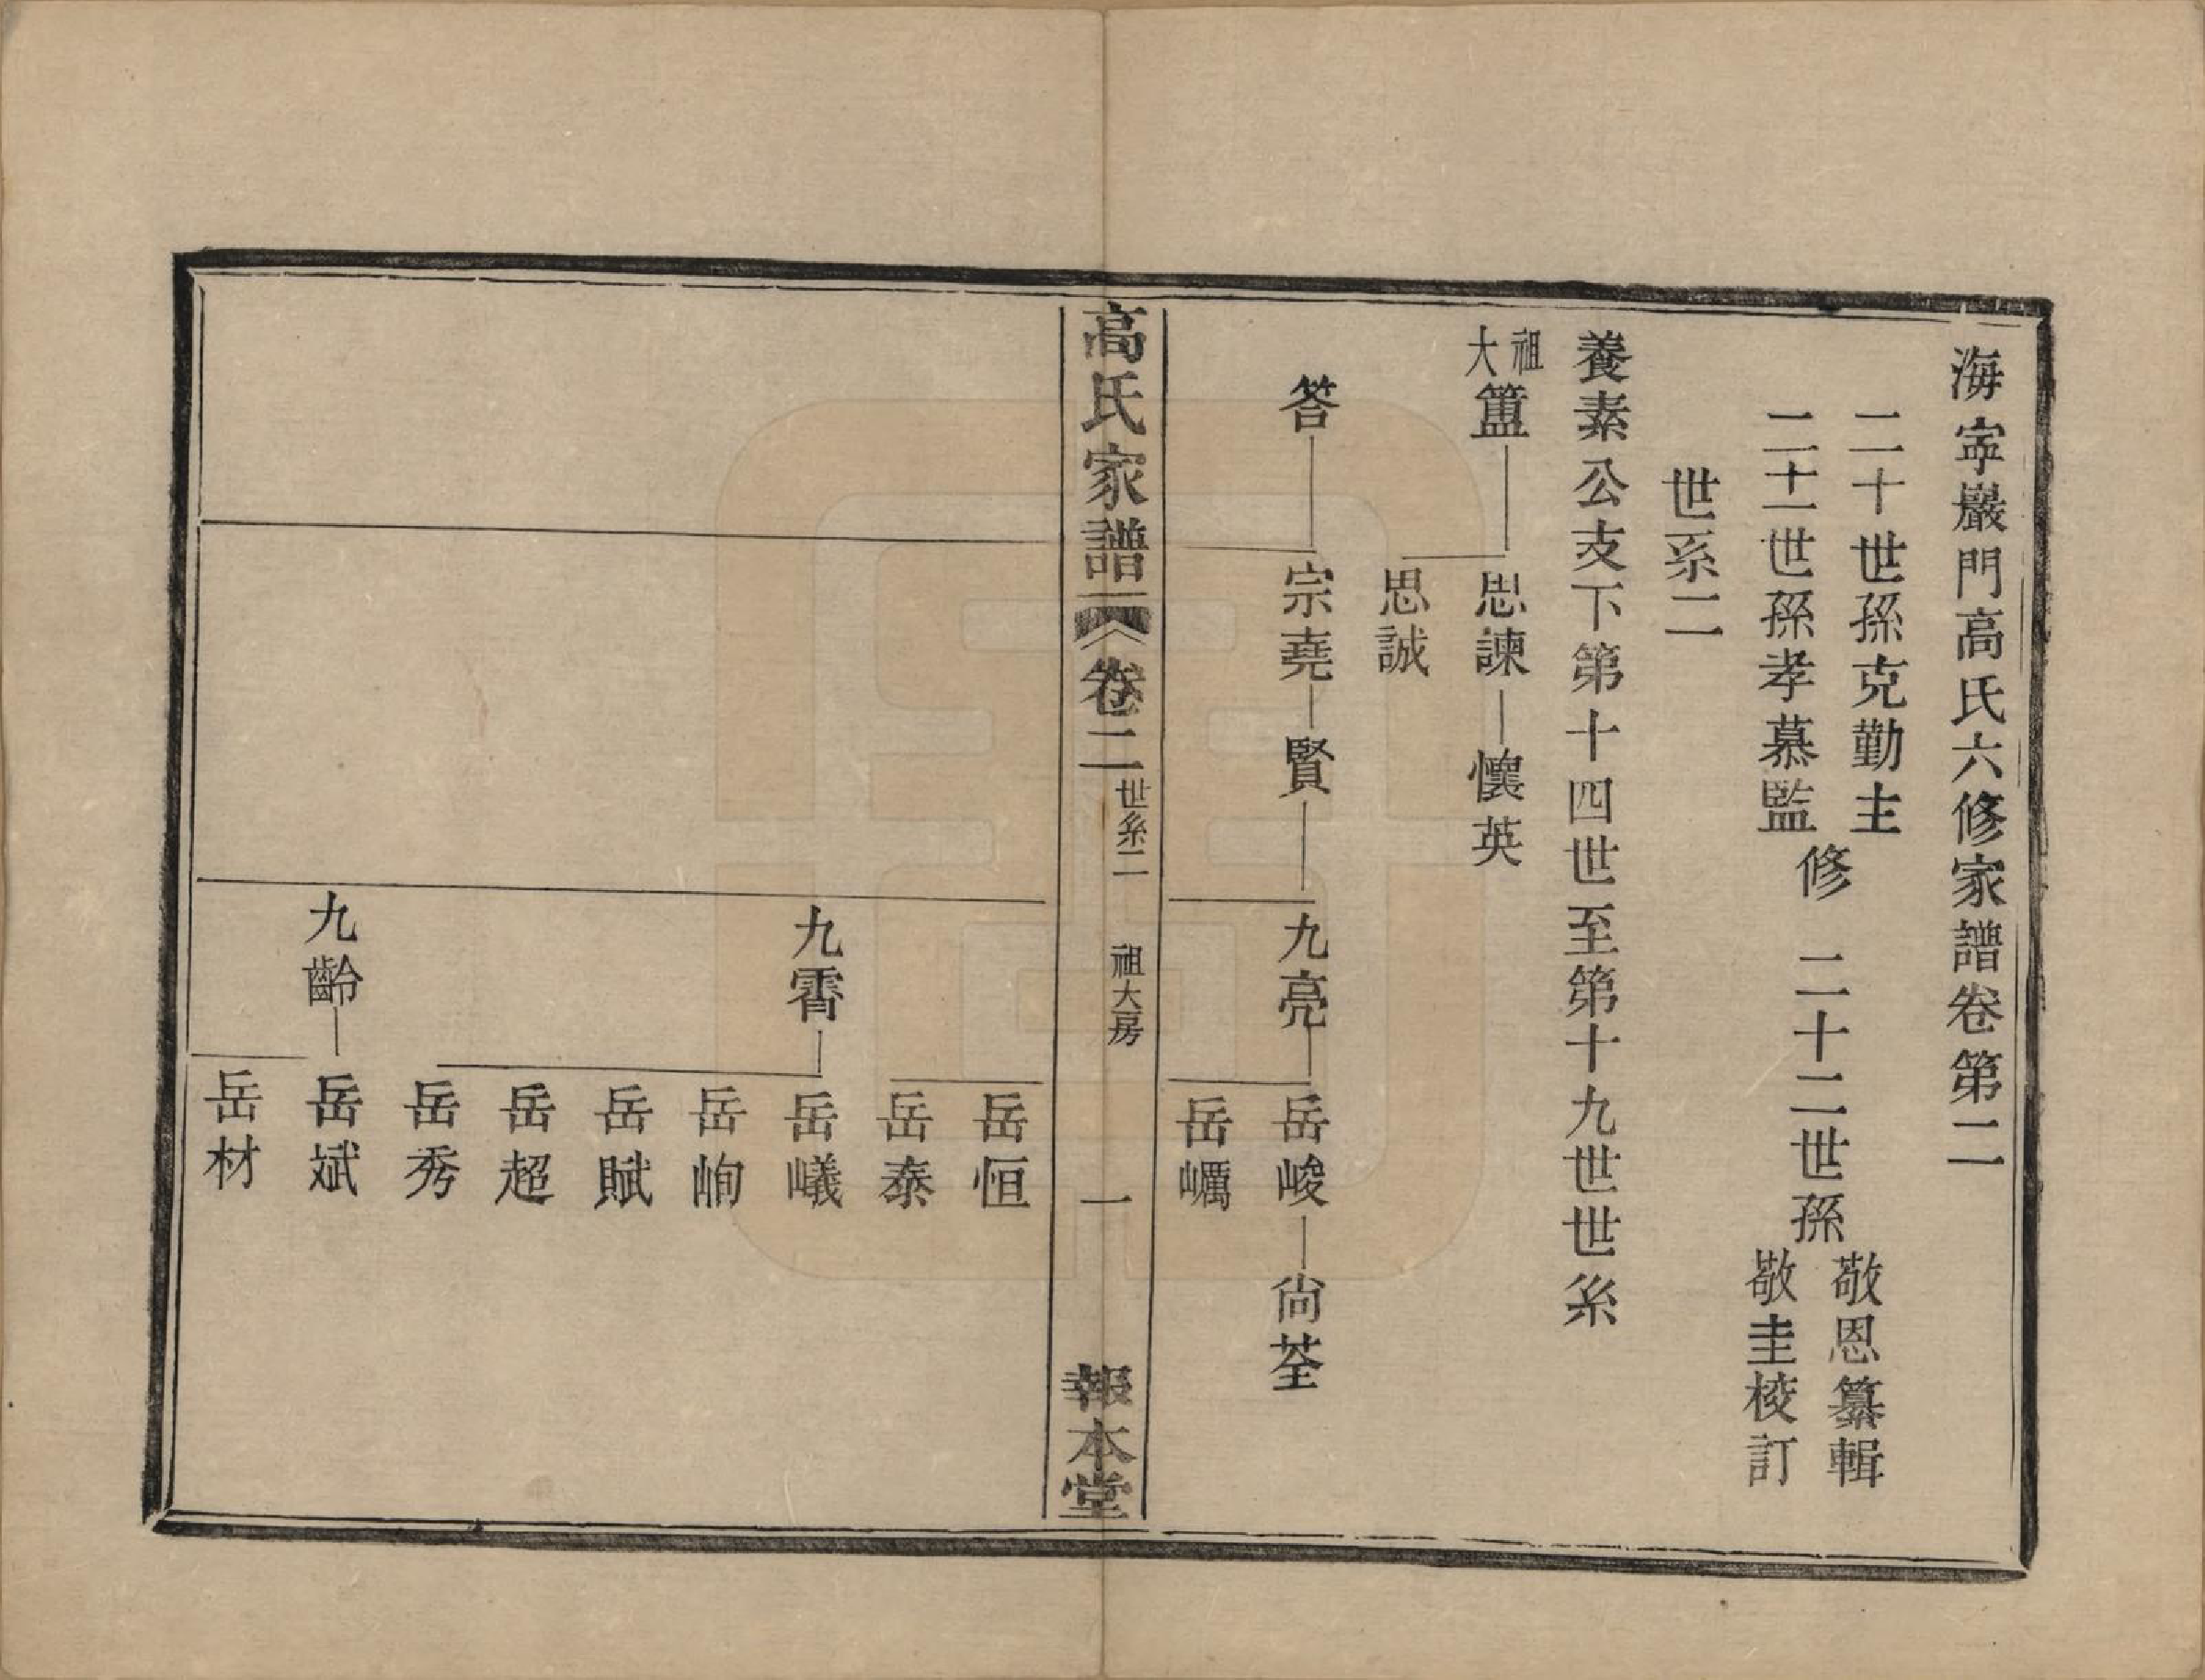 海寧巖門高氏六修家譜卷第二
二十世孫克勤主
二十一世孫孝慕監
修
二十二世孫
敬恩纂輯
敬圭校訂
世系二
養素公支下第十四世至第十九世世系
祖大
簠
思諫
懷英
思誠
答
宗堯
賢
九亮
岳峻
尚荃
岳巁
高氏家譜
卷二
世系二
祖大房
一
報本堂
岳恒
岳泰
九霄
岳嶬
岳峋
岳賦
岳超
岳秀
九齡
岳斌
岳材